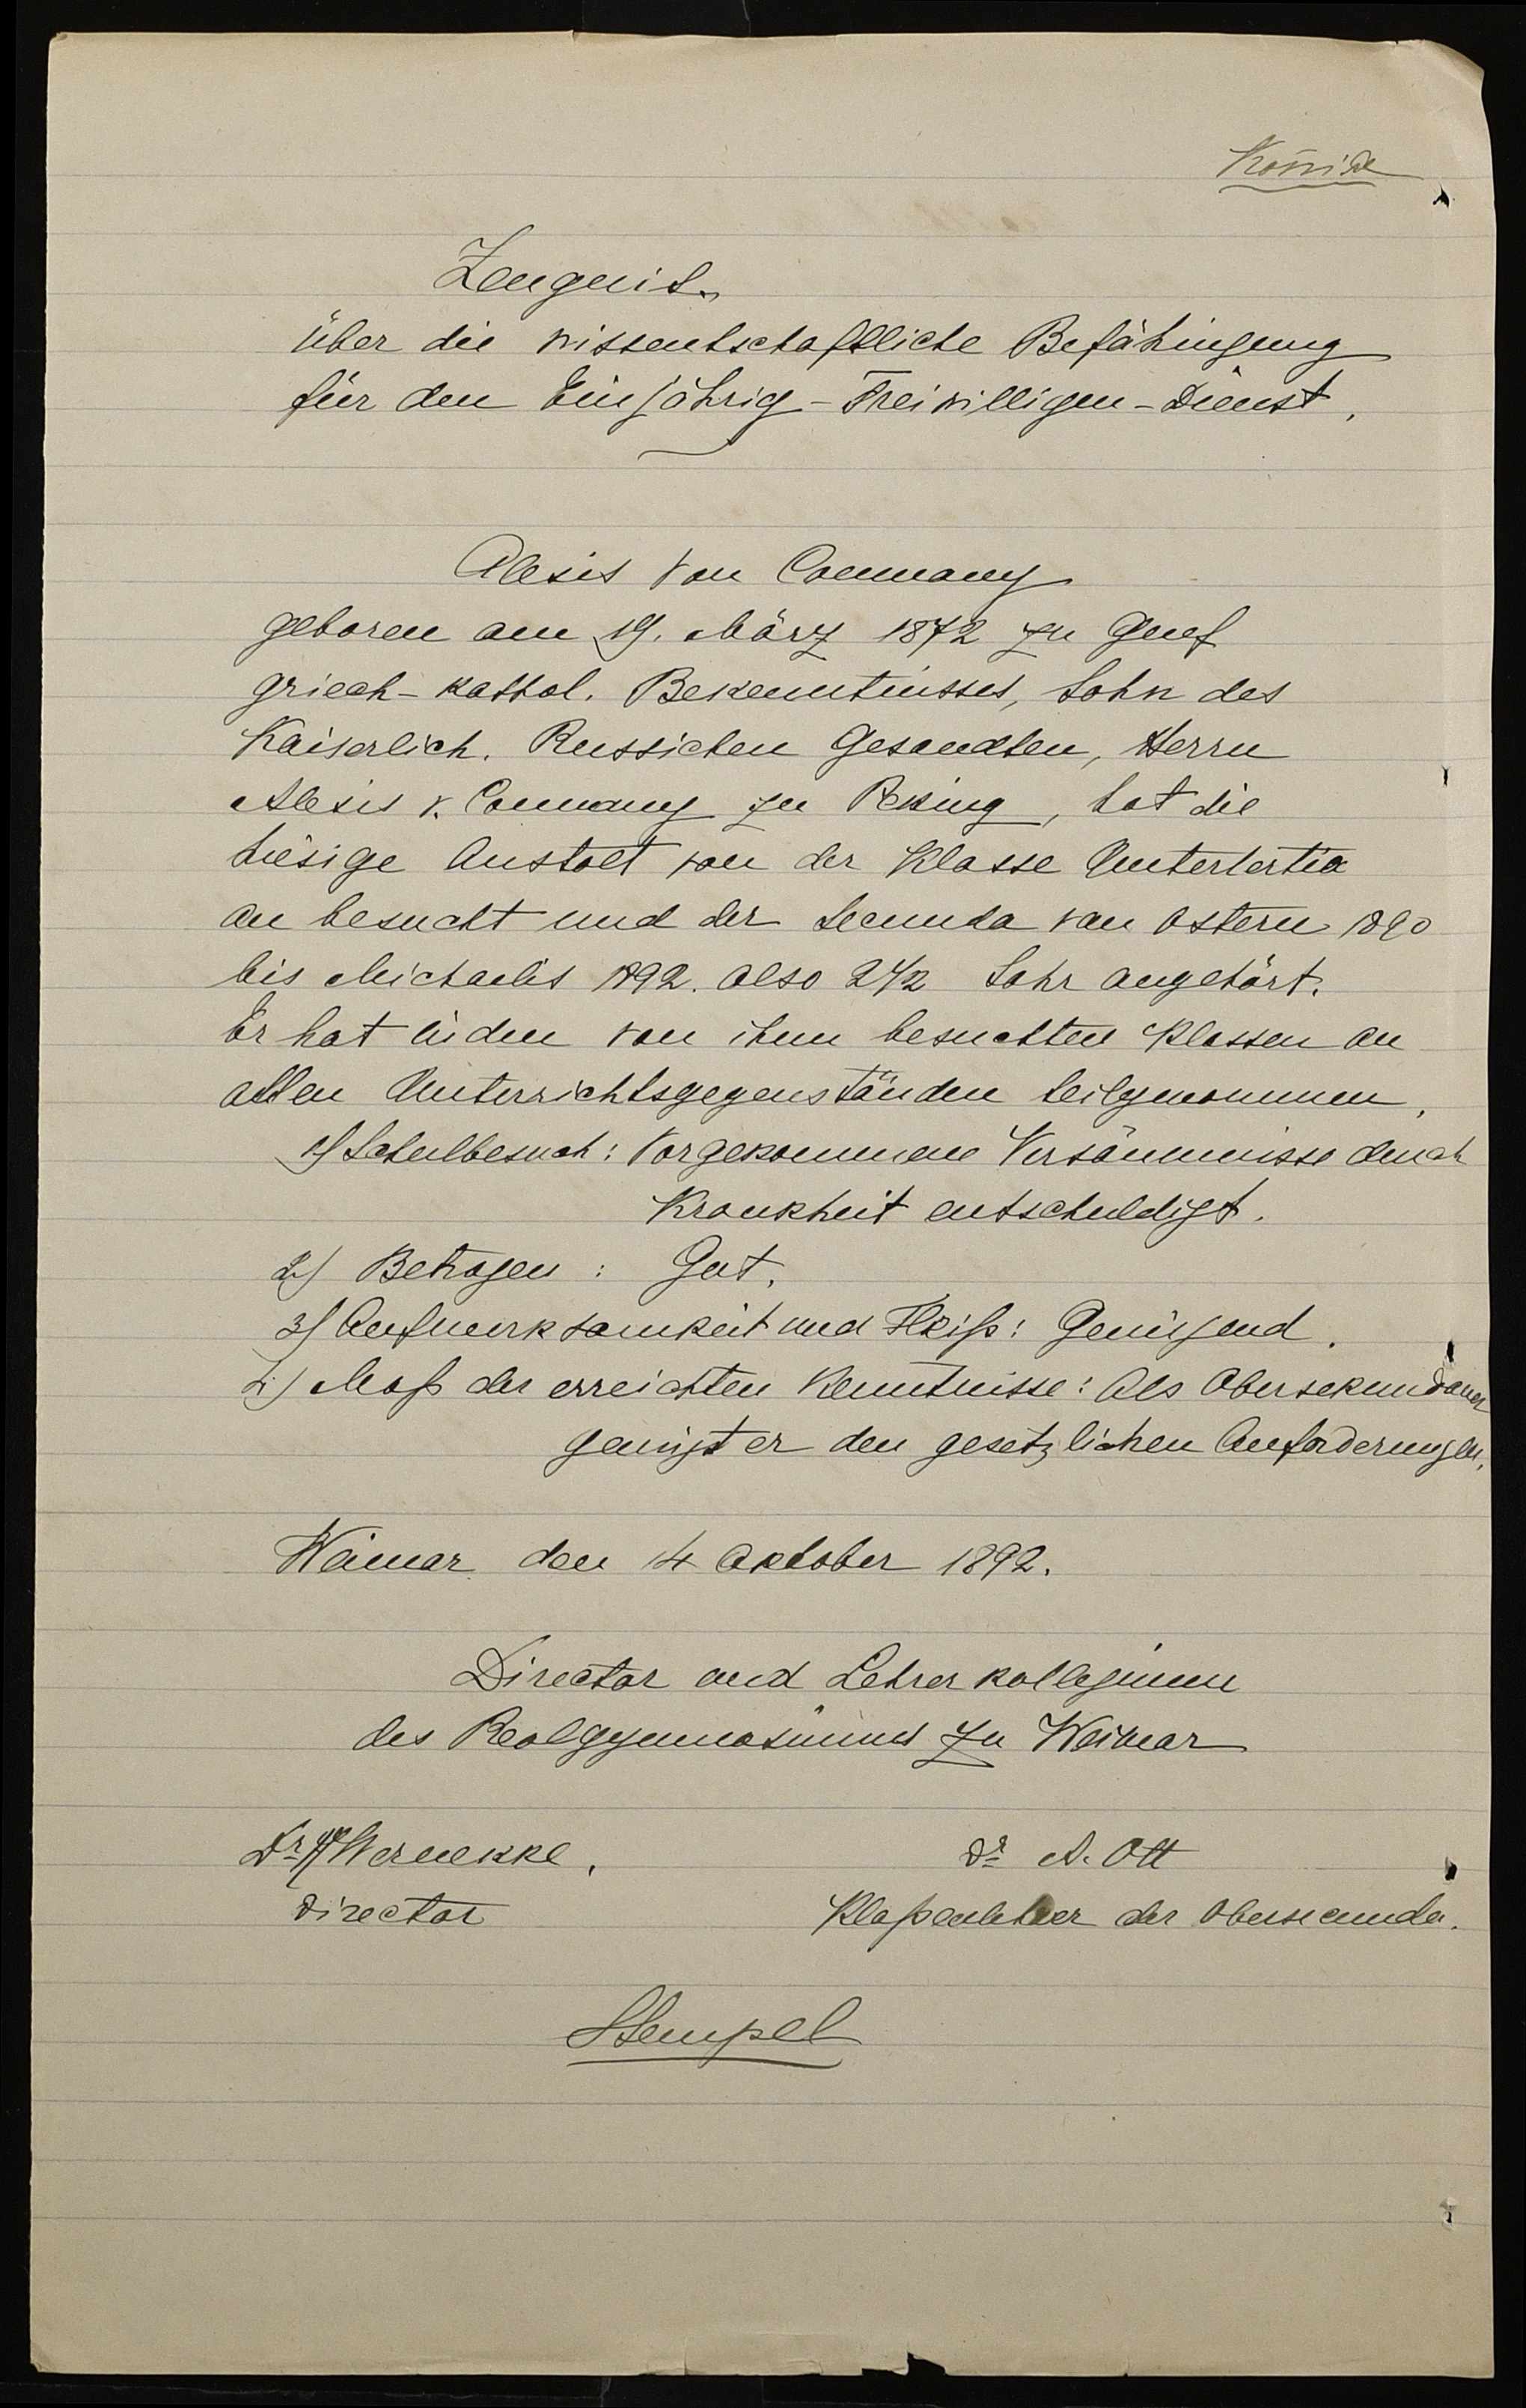 Zeugnis.
über die wissentschaftliche Befähingung
für den Einjährig-Freiwilligen-Dienst.
Alexis von Coumany
geboren am 19. März 1872 zu Genf
griech-kathol. Bekenntnisses, Sohn des
Kaiserlich. Russichen Gesandten, Herrn
Alexis v. Coumany zu Peking, hat die
hiesige Anstalt von der Klasse Untertertia
an besucht und der Secunda von Ostern 1890
bis Michaelis 1892. also 2 1/2 Jahr angehört.
Er hat in den von ihm besuchten Klassen an
allen Unterrichtsgegenständen teilgenommen.
1) Schulbesuch: Vorgekommene Versäumnisse durch
Krankheit entschuldigt.
2) Betragen: Gut.
3) Aufmerksamkeit und Fleiß: Genügend.
4) Maß der erreichten Kenntnisse: Als Obersekundaner
genügt er den gesetzlichen Anforderungen.
Weimar den 14 Oktober 1892.
Director und Lehrerkollegium
des Realgymnasiums zu Weimar
Dr Wernekke.
Dr A. Ott
Director
Klaßenlehrer der Obersecunda.
Stempel